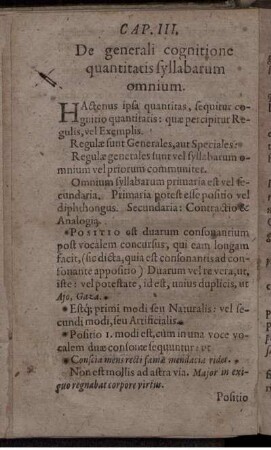 CAP. III.
De generali cognitione
quantitatis syllabarum
omnium.
HActenus ipsa quantitas, sequitur co-
gnitio quantitatis: quæ percipitur Re-
gulis, vel Exemplis.
Regulæ sunt Generales, aut Speciales.
Regulæ generales sunt vel syllabarum o-
mnium vel priorum communiter.
Omnium syllabarum primaria est vel se-
cundaria. Primaria potest esse positio vel
diphthongus. Secundaria: Contractio &
Analogia.
* POSITIO est duarum consonantium
post vocalem concursus, qui eam longam
facit, (sic dicta, quia est consonantis ad con-
sonante appositio) Duarum vel re vera, ut,
iste: vel potestate, id est, unius duplicis, ut
Ajo, Gaza.
* Estq; primi modi seu Naturalis: vel se-
cundi modi, seu Artificialis.
* Positio 1. modi est, cum in una voce vo-
calem duæ consonæ sequuntur: ut
* Conscia mens recti famæ mendacia ridet.
Non est mollis ad astra via. Major in exi-
guo regnabat corpore virtus.
Positio